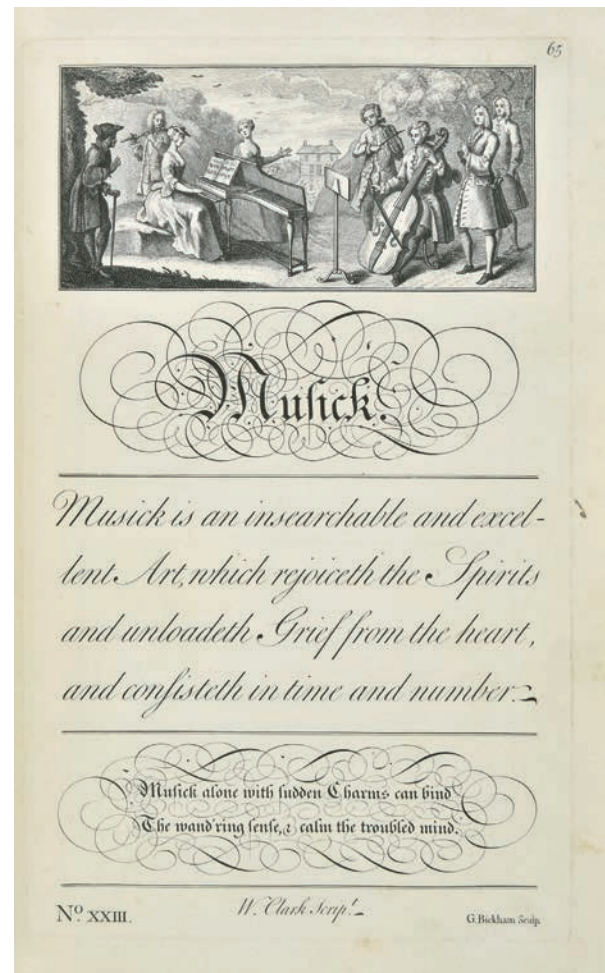 65
Muſick.
Musick is an insearchable and excel-
lent Art, which rejoiceth the Spirits
and unloadeth Grief from the heart,
and conſisteth in time and number.
Muſick alone with ſudden Charms can bind
The wand'ring ſenſe, & calm the troubled mind.
No. XXIII.
W. Clark Scrip.t
G. Bickham Sculp.